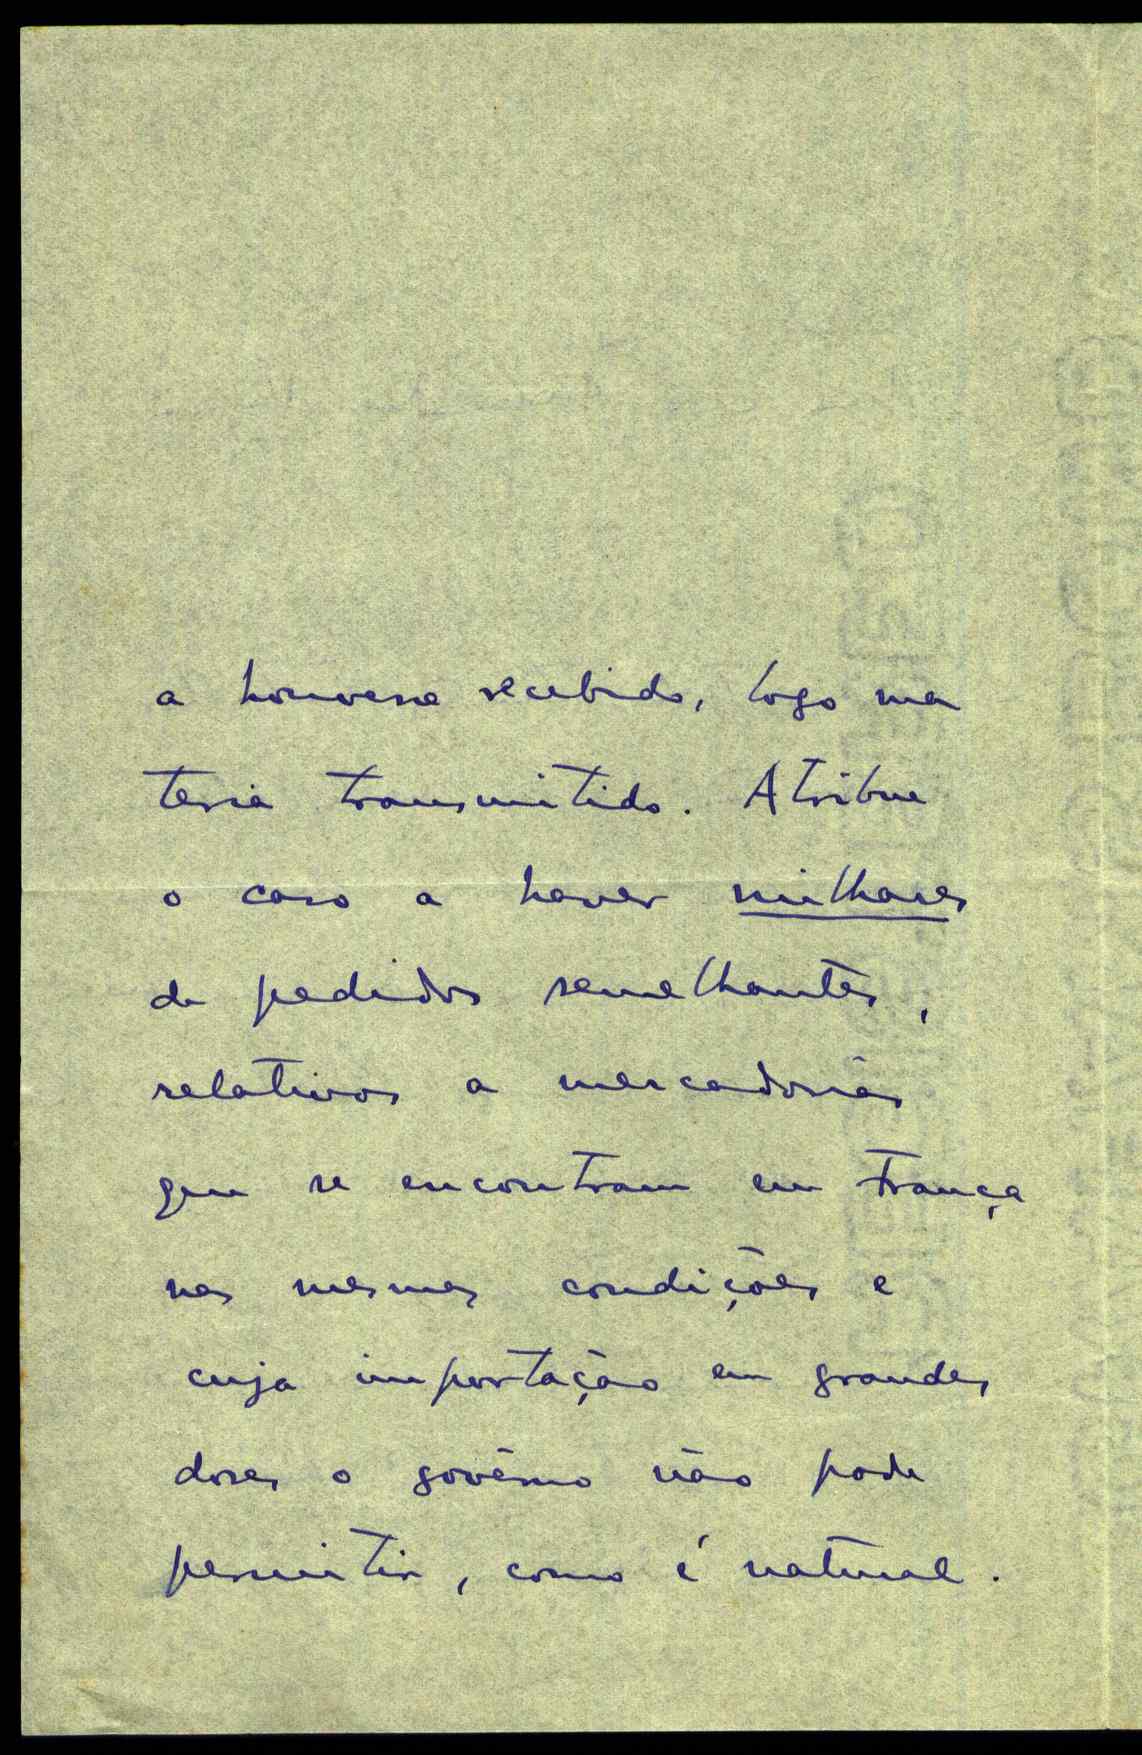 a houvesse recebido, logo ma
teria transmitido. Atribue
o caso a haver milhares
de pedidos semelhantes,
relativos a mercadorias
que se encontram em França
nas mesmas condições e
cuja importação em grandes
doses o govêrno não pode
permitir, como é natural.